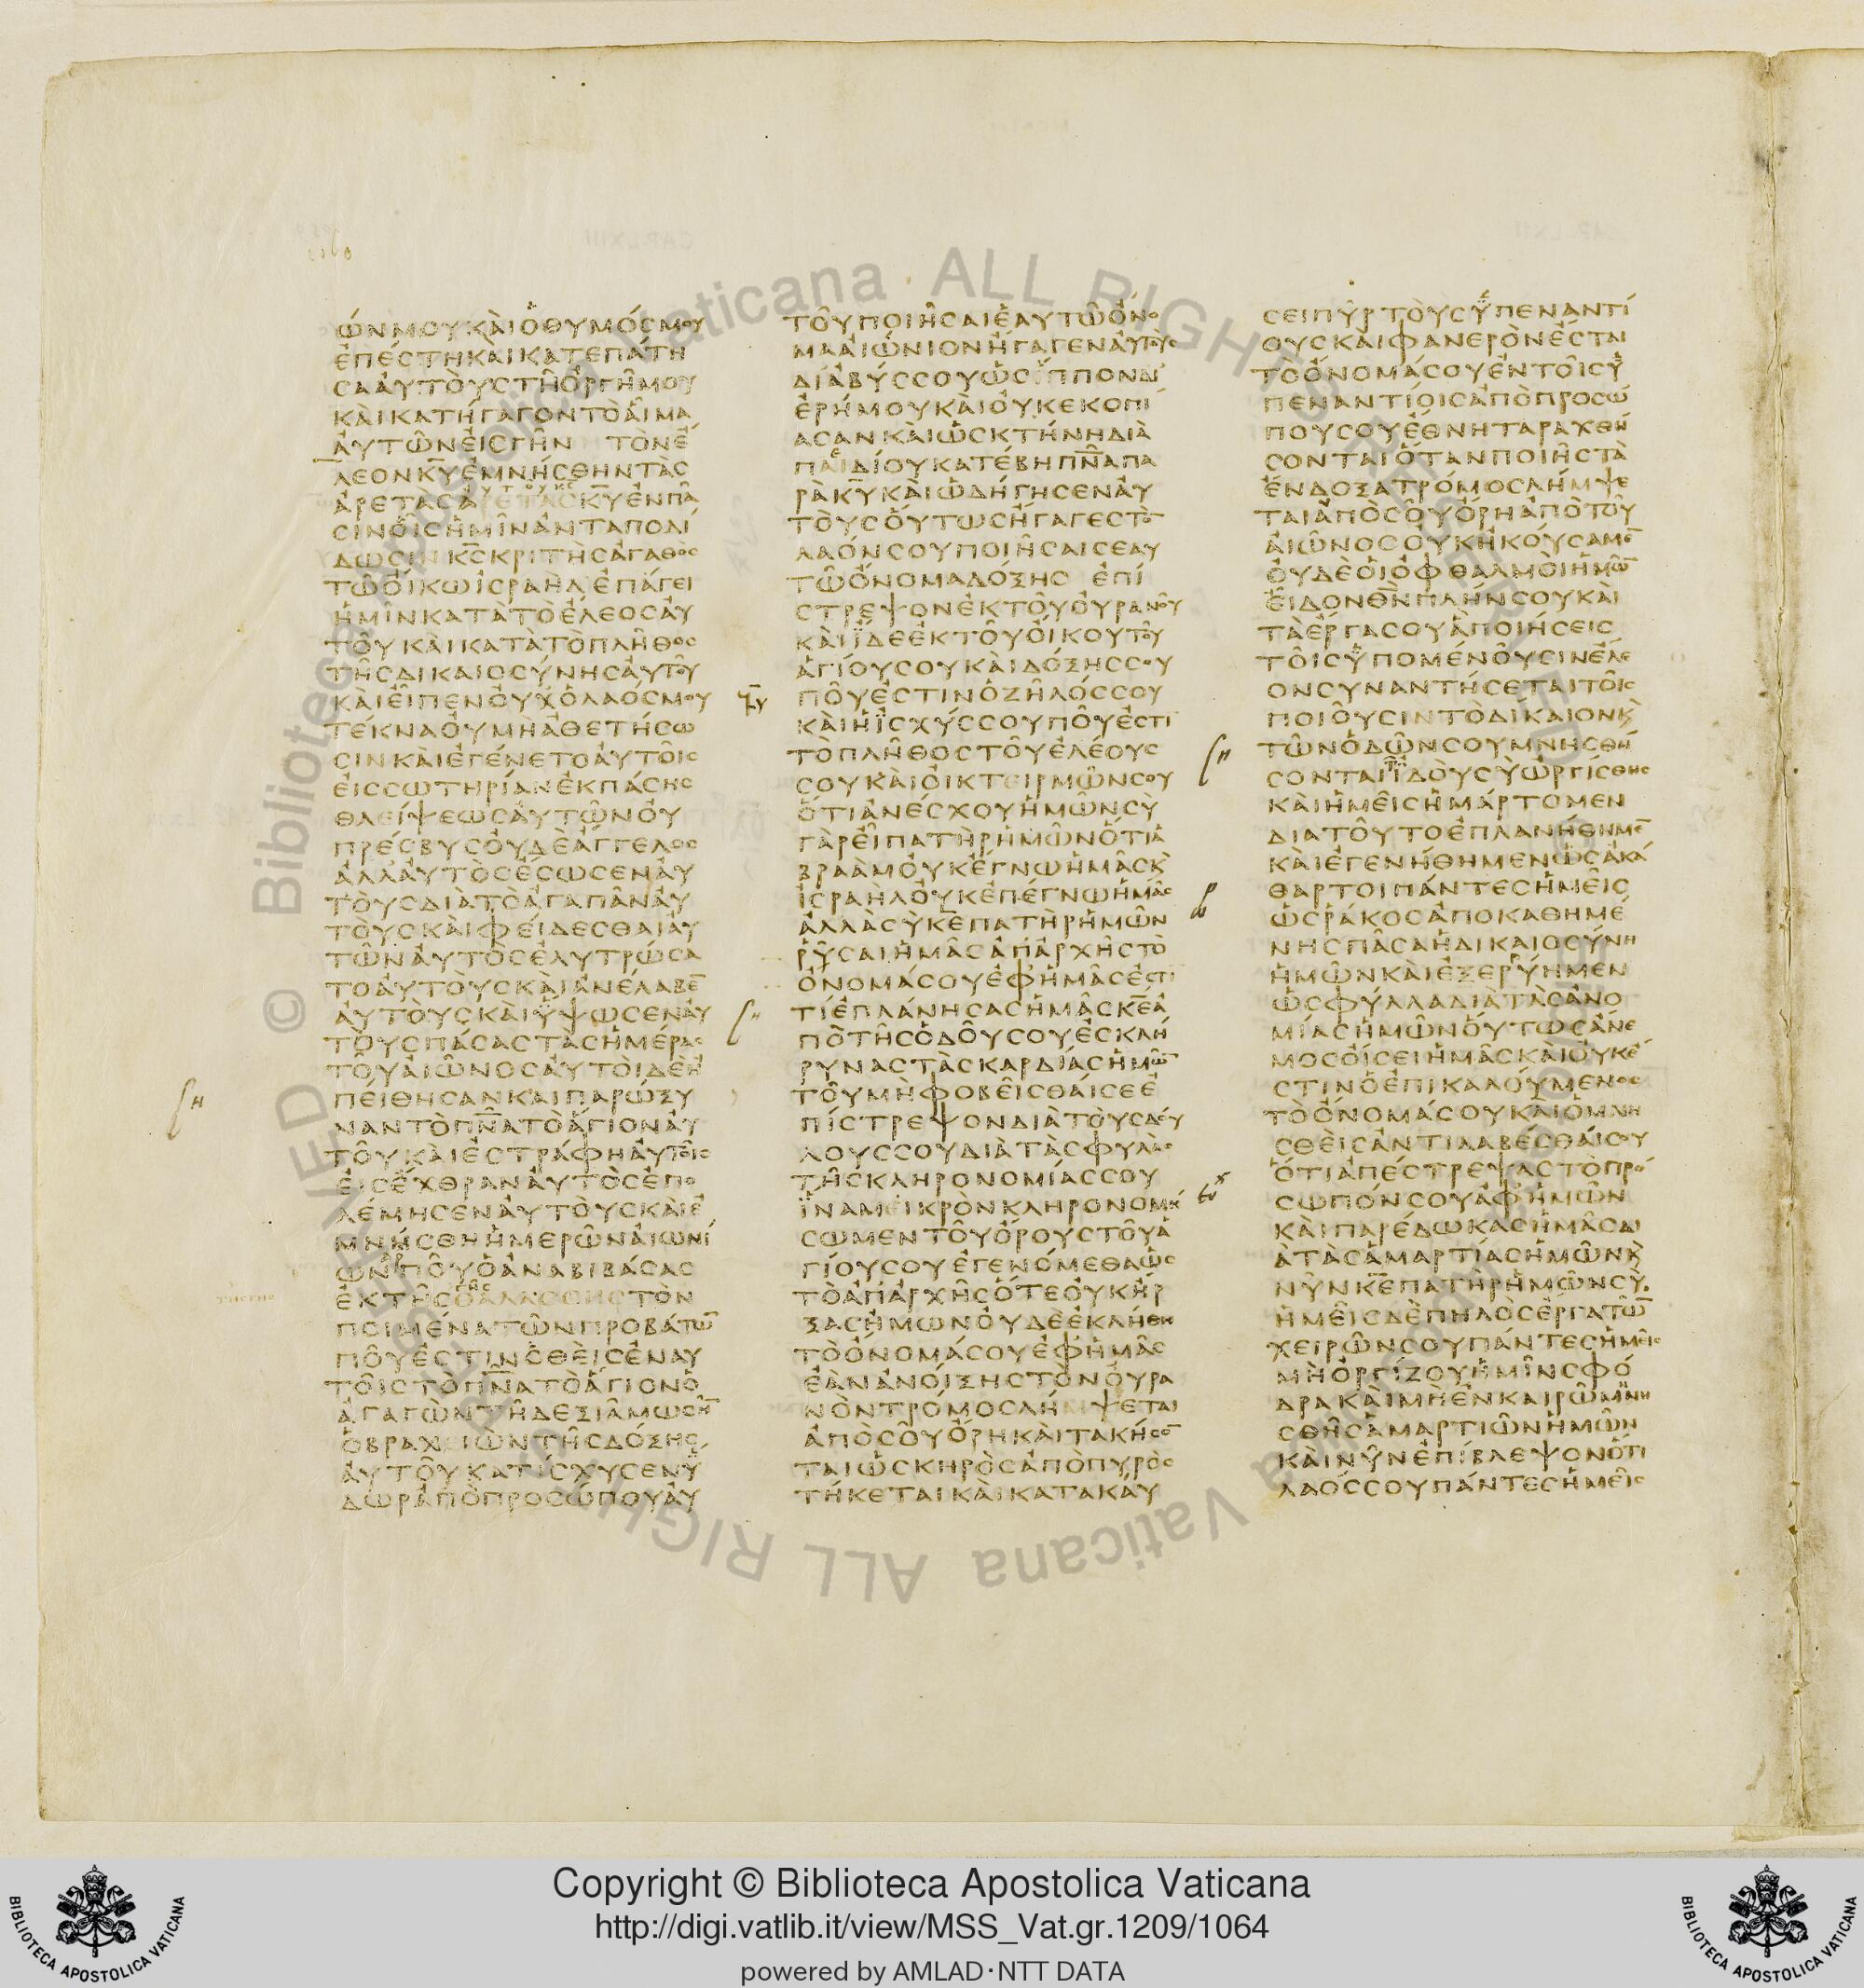 ώΝΜΟΥΚΑΙΟΘΥΜΟΣΜΟΥ
ΕΠΕΣΤΗΚΑΙΚΑΤΕΠΑΤΗ
ΣΑΑΥΤΟΥΣΤΗΟΡΓΗΜΟΥ
ΚΑΙΚΑΤΗΓΑΓΟΝΤΟΑΙΜΑ
ΑΥΤΩΝΕΙΣΓΗΝ ΤΟΝΕ
ΛΕΟΝΚΥΕΜΝΗΣΘΗΝΤΑΣ
ΑΡΕΤΑΣ ΚΥΕΝΠΑ
ΣΙΝΟΙΣΗΜΙΝΑΝΤΑΠΟΔΙ
ΔΩΣΙΝΚΣΚΡΙΤΗΣΑΓΑΘΟΣ
ΤΩΟΙΚΩΙΣΡΑΗΛΕΠΑΓΕΙ
ΗΜΙΝΚΑΤΑΤΟΕΛΕΟΣΑΥ
ΤΟΥΚΑΙΚΑΤΑΤΟΠΛΗΘΟΣ
ΤΗΣΔΙΚΑΙΟΣΥΝΗΣΑΥΤΟΥ
ΚΑΙΕΙΠΕΝΟΥΧΟΛΑΟΣΜΟΥ
ΤΕΚΝΑΟΥΜΗΑΘΕΤΗΣΩ
ΣΙΝΚΑΙΕΓΕΝΕΤΟΑΥΤΟΙΣ
ΕΙΣΣΩΤΗΡΙΑΝΕΚΠΑΣΗΣ
ΘΛΕΙΨΕΩΣΑΥΤΩΝΟΥ
ΠΡΕΣΒΥΣΟΥΔΕΑΓΓΕΛΟΣ
ΑΛΛΑΥΤΟΣΕΣΩΣΕΝΑΥ
ΤΟΥΣΔΙΑΤΟΑΓΑΠΑΝΑΥ
ΤΟΥΣΚΑΙΦΕΙΔΕΣΘΑΙΑΥ
ΤΩΝΑΥΤΟΣΕΛΥΤΡΩΣΑ
ΤΟΑΥΤΟΥΣΚΑΙΑΝΕΛΑΒΕ̅
ΑΥΤΟΥΣΚΑΙΥΨΩΣΕΝΑΥ
ΤΟΥΣΠΑΣΑΣΤΑΣΗΜΕΡΑΣ
ΤΟΥΑΙΩΝΟΣΑΥΤΟΙΔΕΗ
ΠΕΙΘΗΣΑΝΚΑΙΠΑΡΩΞΥ
ΝΑΝΤΟΠΝ̅ΑΤΟΑΓΙΟΝΑΥ
ΤΟΥΚΑΙΕΣΤΡΑΦΗΑΥΤΟΙΣ
ΕΙΣΕΧΘΡΑΝΑΥΤΟΣΕΠΟ
ΛΕΜΗΣΕΝΑΥΤΟΥΣΚΑΙΕ
ΜΝΗΣΘΗΗΜΕΡΩΝΑΙΩΝΙ
ΩΝΠΟΥΟΑΝΑΒΙΒΑΣΑΣ
ΕΚΤΗΣ ΤΟΝ
ΠΟΙΜΕΝΑΤΩΝΠΡΟΒΑΤΩ̅
ΠΟΥΕΣΤΙΝΟΘΕΙΣΕΝΑΥ
ΤΟΙΣΤΟΠΝ̅ΑΤΟΑΓΙΟΝΟ
ΑΓΑΓΩΝΤΗΔΕΞΙΑΜΩΣΗ̅
ΟΒΡΑΧΕΙΩΝΤΗΣΔΟΞΗΣ
ΑΥΤΟΥΚΑΤΙΣΧΥΣΕΝΥ
ΔΩΡΑΠΟΠΡΟΣΩΠΟΥΑΥ
ΤΟΥΠΟΙΗΣΑΙΕΑΥΤΩΟΝΟ
ΜΑΑΙΩΝΙΟΝΗΓΑΓΕΝΑΥΤΟΥΣ
ΔΙΑΒΥΣΣΟΥΩΣΙΠΠΟΝΔΙ
ΕΡΗΜΟΥΚΑΙΟΥΚΕΚΟΠΙ
ΑΣΑΝΚΑΙΩΣΚΤΗΝΗΔΙΑ
ΠΑΙΔΙΟΥΚΑΤΕΒΗΠΝ̅ΑΠΑ
ΡΑΚΥΚΑΙΩΔΗΓΗΣΕΝΑΥ
ΤΟΥΣΟΥΤΩΣΗΓΑΓΕΣΤΟ̅
ΛΑΟΝΣΟΥΠΟΙΗΣΑΙΣΕΑΥ
ΤΩΟΝΟΜΑΔΟΞΗΣ ΕΠΙ
ΣΤΡΕΨΟΝΕΚΤΟΥΟΥΡΑΝΟΥ
ΚΑΙΙΔΕΕΚΤΟΥΟΙΚΟΥΤΟΥ
ΑΓΙΟΥΣΟΥΚΑΙΔΟΞΗΣΣΟΥ
ΠΟΥΕΣΤΙΝΟΖΗΛΟΣΣΟΥ
ΚΑΙΗΙΣΧΥΣΣΟΥΠΟΥΕΣΤΙ
ΤΟΠΛΗΘΟΣΤΟΥΕΛΕΟΥΣ
ΣΟΥΚΑΙΟΙΚΤΕΙΡΜΩΝΣΟΥ
ΟΤΙΑΝΕΣΧΟΥΗΜΩΝΣΥ
ΓΑΡΕΙΠΑΤΗΡΗΜΩΝΟΤΙΑ
ΒΡΑΑΜΟΥΚΕΓΝΩΗΜΑΣΚ
ΙΣΡΑΗΛΟΥΚΕΠΕΓΝΩΗΜΑΣ
ΑΛΛΑΣΥΚΕ̅ΠΑΤΗΡΗΜΩΝ
ΡΥΣΑΙΗΜΑΣΑΠΑΡΧΗΣΤΟ
ΟΝΟΜΑΣΟΥΕΦΗΜΑΣΕΣΤΙ
ΤΙΕΠΛΑΝΗΣΑΣΗΜΑΣΚΕ̅Α
ΠΟΤΗΣΟΔΟΥΣΟΥΕΣΚΛΗ
ΡΥΝΑΣΤΑΣΚΑΡΔΙΑΣΗΜΩ̅
ΤΟΥΜΗΦΟΒΕΙΣΘΑΙΣΕΕ
ΠΙΣΤΡΕΨΟΝΔΙΑΤΟΥΣΔΟΥ
ΛΟΥΣΣΟΥΔΙΑΤΑΣΦΥΛΑΣ
ΤΗΣΚΛΗΡΟΝΟΜΙΑΣΣΟΥ
ΙΝΑΜΕΙΚΡΟΝΚΛΗΡΟΝΟΜΗ
ΣΩΜΕΝΤΟΥΟΡΟΥΣΤΟΥΑ
ΓΙΟΥΣΟΥΕΓΕΝΟΜΕΘΑΩΣ
ΤΟΑΠΑΡΧΗΣΟΤΕΟΥΚΗΡ
ΞΑΣΗΜΩΝΟΥΔΕΕΚΛΗΘΗ
ΤΟΟΝΟΜΑΣΟΥΕΦΗΜΑΣ
ΕΑΝΑΝΟΙΞΗΣΤΟΝΟΥΡΑ
ΝΟΝΤΡΟΜΟΣΛΗΜΨΕΤΑΙ
ΑΠΟΣΟΥΟΡΗΚΑΙΤΑΚΗΣΟ̅
ΤΑΙΩΣΚΗΡΟΣΑΠΟΠΥΡΟΣ
ΤΗΚΕΤΑΙΚΑΙΚΑΤΑΚΑΥ
ΣΕΙΠΥΡΤΟΥΣΥΠΕΝΑΝΤΙ
ΟΥΣΚΑΙΦΑΝΕΡΟΝΕΣΤΑΙ
ΤΟΟΝΟΜΑΣΟΥΕΝΤΟΙΣΥ
ΠΕΝΑΝΤΙΟΙΣΑΠΟΠΡΟΣΩ
ΠΟΥΣΟΥΕΘΝΗΤΑΡΑΧΘΗ
ΣΟΝΤΑΙΟΤΑΝΠΟΙΗΣΤΑ
ΕΝΔΟΞΑΤΡΟΜΟΣΛΗΜΨΕ
ΤΑΙΑΠΟΣΟΥΟΡΗΑΠΟΤΟΥ
ΑΙΩΝΟΣΟΥΚΗΚΟΥΣΑΜΕ̅
ΟΥΔΕΟΙΟΦΘΑΛΜΟΙΗΜΩ̅
ΕΙΔΟΝΘΝ̅ΠΛΗΝΣΟΥΚΑΙ
ΤΑΕΡΓΑΣΟΥΑΠΟΙΗΣΕΙΣ
ΤΟΙΣΥΠΟΜΕΝΟΥΣΙΝΕΛΕ
ΟΝΣΥΝΑΝΤΗΣΕΤΑΙΤΟΙΣ
ΠΟΙΟΥΣΙΝΤΟΔΙΚΑΙΟΝΚ
ΤΩΝΟΔΩΝΣΟΥΜΝΗΣΘΗ
ΣΟΝΤΑΙΙΔΟΥΣΥΩΡΓΙΣΘΗΣ
ΚΑΙΗΜΕΙΣΗΜΑΡΤΟΜΕΝ
ΔΙΑΤΟΥΤΟΕΠΛΑΝΗΘΗΜΕ̅
ΚΑΙΕΓΕΝΗΘΗΜΕΝΩΣΑΚΑ
ΘΑΡΤΟΙΠΑΝΤΕΣΗΜΕΙΣ
ΩΣΡΑΚΟΣΑΠΟΚΑΘΗΜΕ
ΝΗΣΠΑΣΑΗΔΙΚΑΙΟΣΥΝΗ
ΗΜΩΝΚΑΙΕΞΕΡΥΗΜΕΝ
ΩΣΦΥΛΛΑΔΙΑΤΑΣΑΝΟ
ΜΙΑΣΗΜΩΝΟΥΤΩΣΑΝΕ
ΜΟΣΟΙΣΕΙΗΜΑΣΚΑΙΟΥΚΕ
ΣΤΙΝΟΕΠΙΚΑΛΟΥΜΕΝΟΣ
ΤΟΟΝΟΜΑΣΟΥΚΑΙΟΜΝΗ
ΣΘΕΙΣΑΝΤΙΛΑΒΕΣΘΑΙΣΟΥ
ΟΤΙΑΠΕΣΤΡΕΨΑΣΤΟΠΡΟ
ΣΩΠΟΝΣΟΥΑΦΗΜΩΝ
ΚΑΙΠΑΡΕΔΩΚΑΣΗΜΑΣΔΙ
ΑΤΑΣΑΜΑΡΤΙΑΣΗΜΩΝΚ
ΝΥΝΚΕ̅ΠΑΤΗΡΗΜΩΝΣΥ
ΗΜΕΙΣΔΕΠΗΛΟΣΕΡΓΑΤΩ̅
ΧΕΙΡΩΝΣΟΥΠΑΝΤΕΣΗΜΕΙΣ
ΜΗΟΡΓΙΖΟΥΗΜΙΝΣΦΟ
ΔΡΑΚΑΙΜΗΕΝΚΑΙΡΩΜΝΗ
ΣΘΗΣΑΜΑΡΤΙΩΝΗΜΩΝ
ΚΑΙΝΥΝΕΠΙΒΛΕΨΟΝΟΤΙ
ΛΑΟΣΣΟΥΠΑΝΤΕΣΗΜΕΙΣ
© Biblioteca Apostolica Vaticana ALL RIGHTS RESERVED
Copyright © Biblioteca Apostolica Vaticana
http://digi.vatlib.it/view/MSS_Vat.gr.1209/1064
powered by AMLAD·NTT DATA
BIBLIOTECA APOSTOLICA VATICANA
BIBLIOTECA APOSTOLICA VATICANA